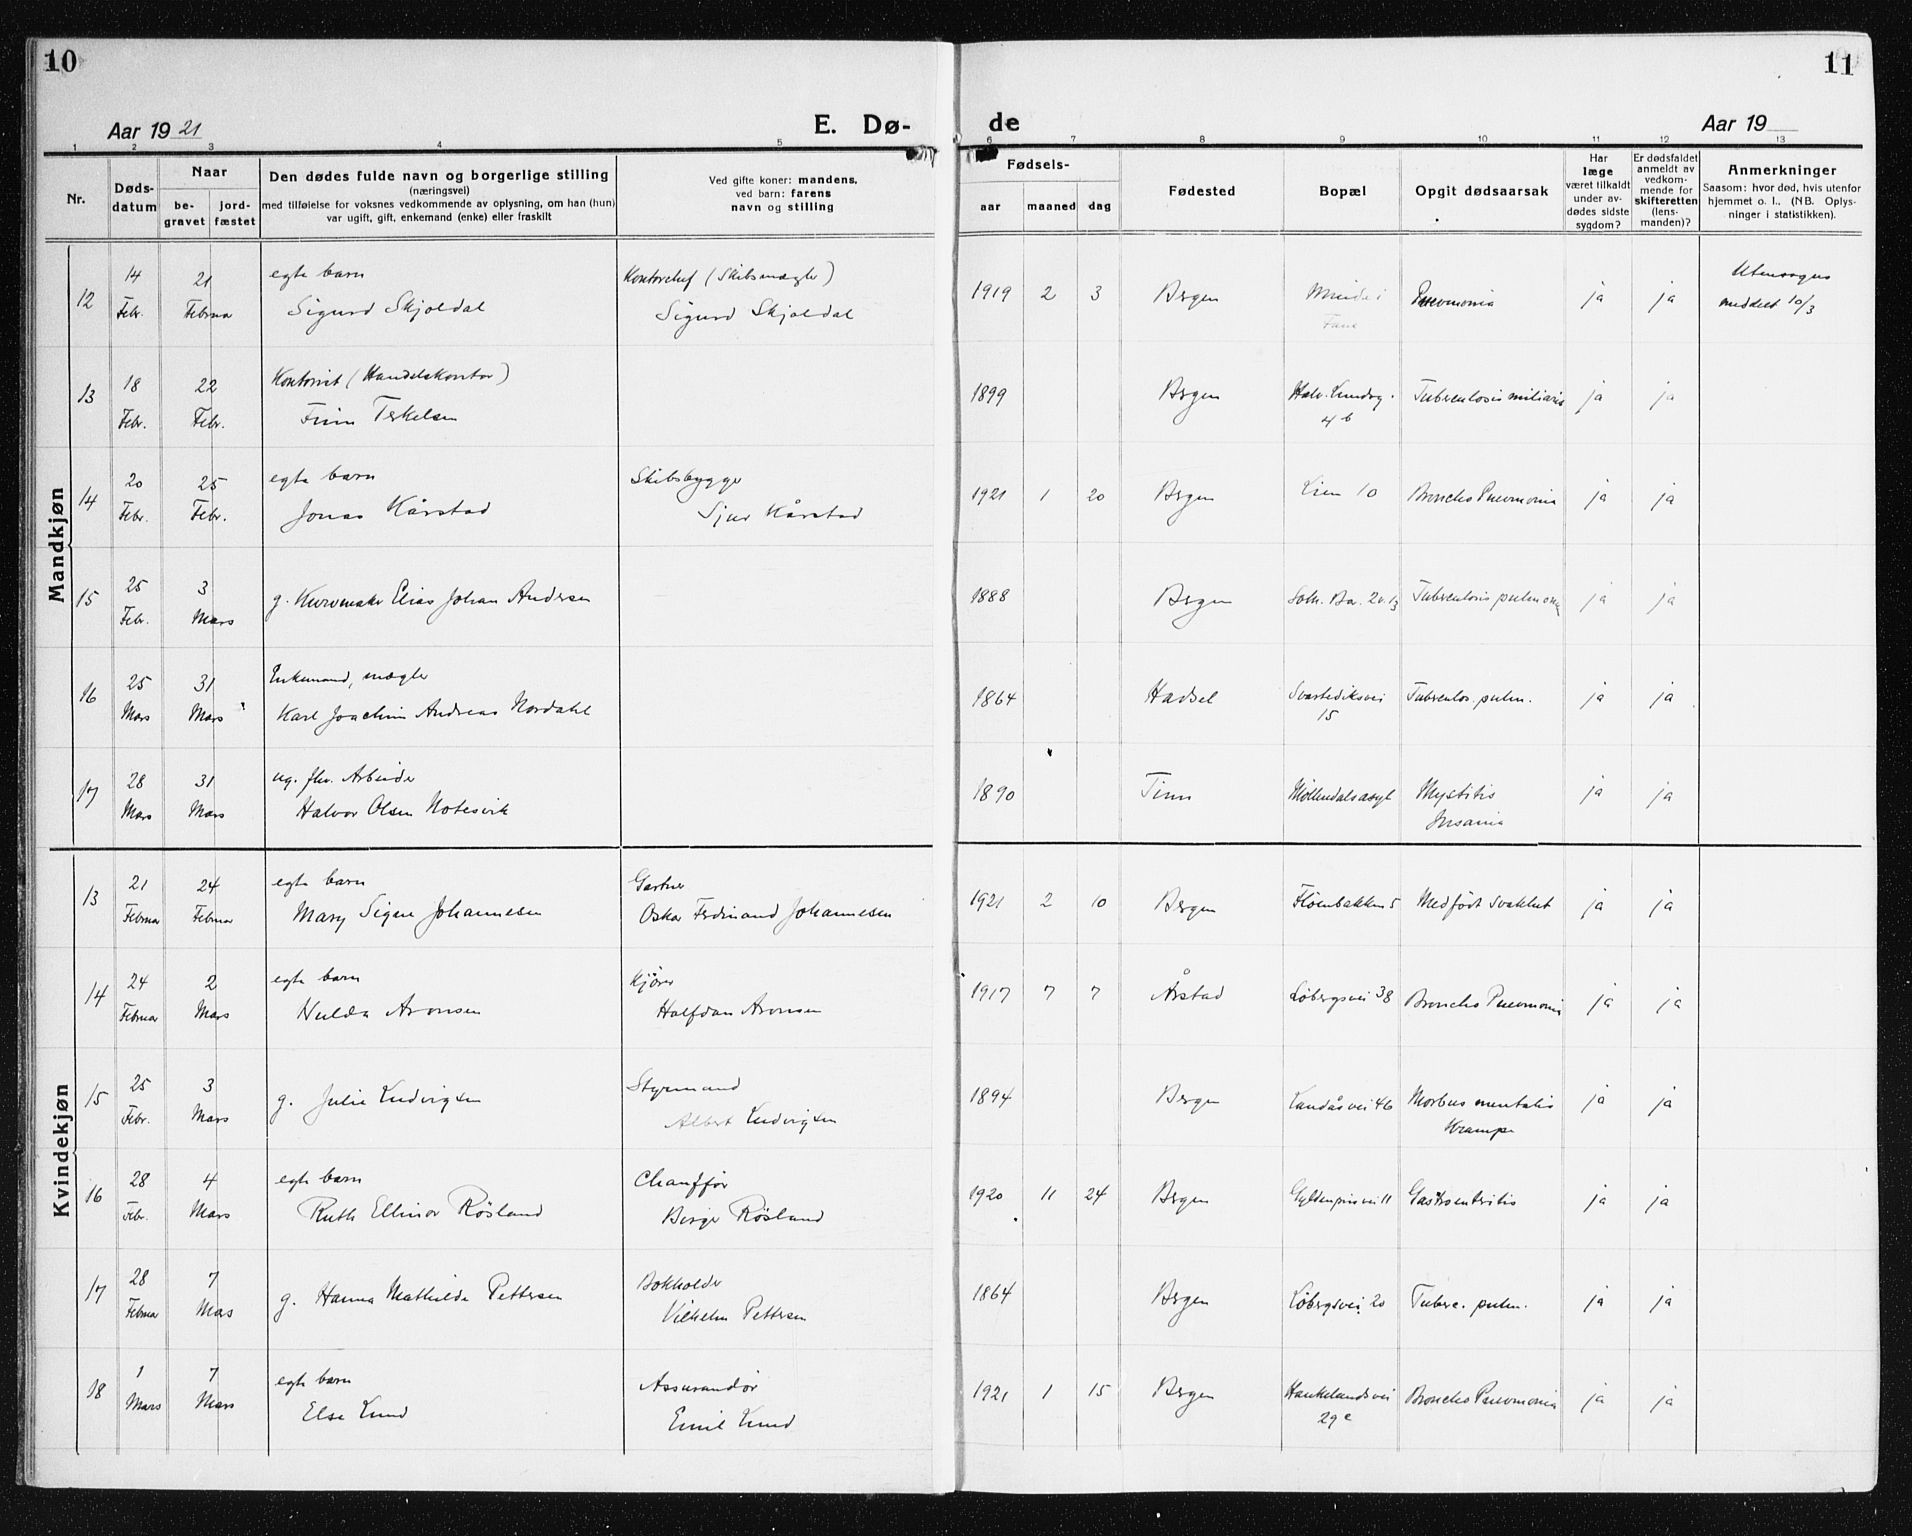 10
11
Aar 1921
E. Dø-
de
Aar 19
1 2 3 4 5 6 7 8 9 10 11 12 13
Nr.
Døds-
datum
Naar
be-
gravet
jord-
fæstet
Den dødes fulde navn og borgerlige stilling
(næringsvei)
med tilføielse for voksnes vedkommende av oplysning, om han (hun)
var ugift, gift, enkemand (enke) eller fraskilt
Ved gifte koner: mandens,
ved barn: farens
navn og stilling
Fødsels-
aar maaned dag
Fødested
Bopæl
Opgit dødsaarsak
Har
læge
været tilkaldt
under av-
dødes sidste
sygdom?
Er dødsfaldet
anmeldt av
vedkom-
mende for
skifteretten
(lens-
manden)?
Anmerkninger
Saasom: hvor død, hvis utenfor
hjemmet o. l., (NB. Oplys-
ninger i statistikken).
Mandkjøn
12 14 21 egte barn Kontorchef (Skibsmægler) 1919 2 3 Bergen Minde i Pneumonia ja ja
Febr. Februar Sigurd Skjoldal Sigurd Skjoldal Fane meddelt 10/3
13 18 22 Kontorist (Handelskontor) 1899 Bergen Tuberculosis miliaris ja ja
Febr. Febr. Finn Terkelsen 4 b
14 20 25 egte barn Skibsbygger 1921 1 20 Bergen Lien 10 Broncho Pneumonia ja ja
Febr. Febr. Jonas Kårstad Sjur Kårstad
15 25 3 g. Kurvmaker Elias Johan Andersen 1888 Bergen Tuberculosis pulmonum ja ja
Febr. Mars
16 25 31 Enkemand, mægler 1864 Hadsel Svartediksvei Tuberculos. pulm. ja ja
Mars Mars Karl Joachim Andreas Nordahl 15
17 28 31 ug. fhv. Arbeider 1890 Tinn Møllendalsasyl Mystitis ja ja
Mars Mars Halvor Olsen Notesvik Insania
Kvindekjøn
13 21 24 egte barn Gartner 1921 2 10 Bergen Fløenbakken 5 Medfødt svakhet ja ja
Februar Februar Mary Signe Johannesen Oskar Ferdinand Johannesen
14 24 2 egte barn Kjører 1917 7 7 Årstad Løbergsvei 38 Broncho Pneumonia ja ja
Februar Mars Hulda Aronsen Halfdan Aronsen
15 25 3 g. Julie Ludvigsen Styrmand 1894 Bergen Landåsvei 46 Morbus mentalis ja ja
Febr. Mars Albert Ludvigsen Krampe
16 28 4 egte barn Chauffør 1920 11 24 Bergen Gyldenprisvei 11 Gastroenteritis ja ja
Febr. Mars Ruth Ellinor Røsland Birger Røsland
17 28 7 g. Hanna Mathilde Pettersen Bokholder 1864 Bergen Løbergsvei 20 Tuberc. pulm. ja ja
Februar Mars Vilhelm Pettersen
18 1 7 egte barn Assurandør 1921 1 15 Bergen Haukelandsvei Broncho Pneumonia ja ja
Mars Mars Else Lund Emil Lund 29 c